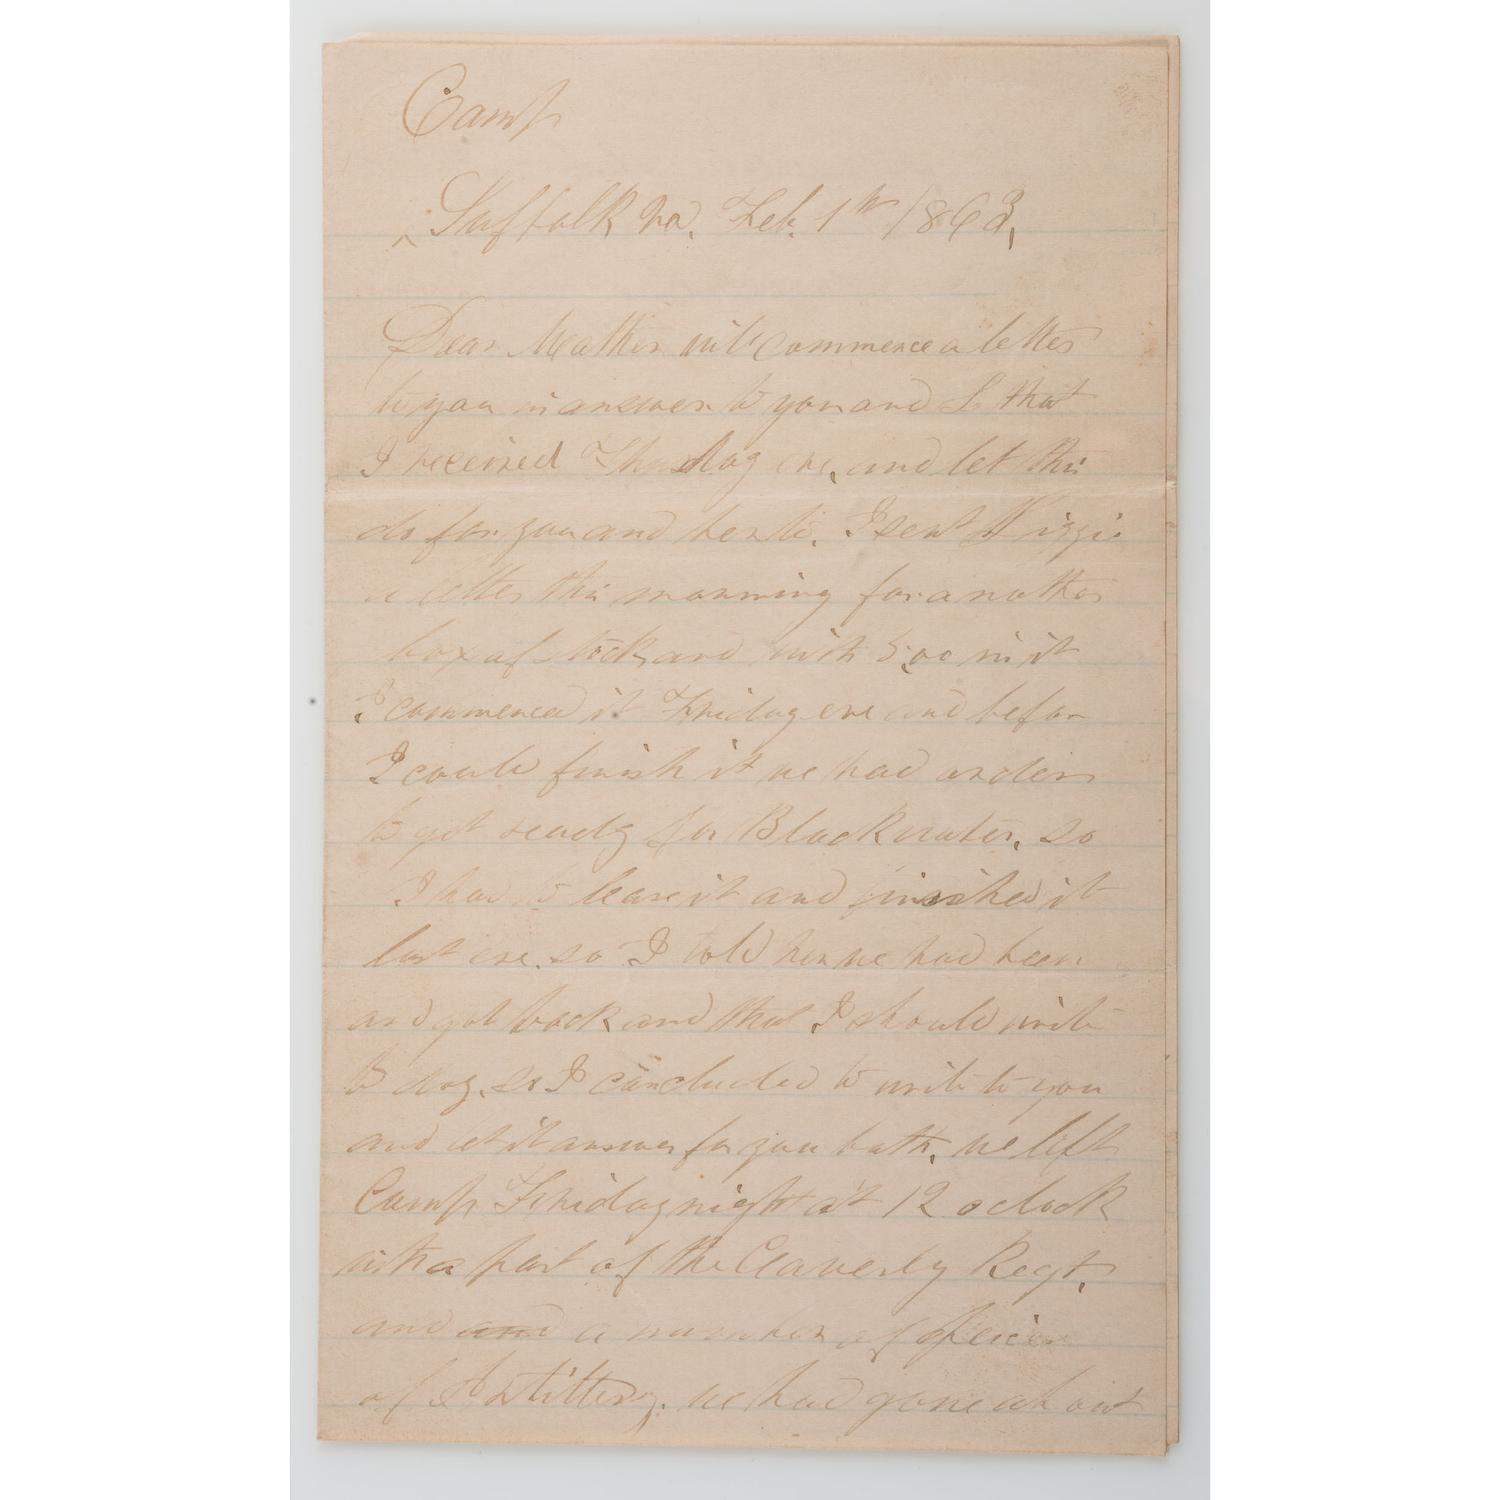 Camp
Suffolk Va. Feb. 1st 1863,
Dear Mother will commence a letter
to you in answer to you and L that
I received Thursday eve, and let this
do for you and her to. I sent Lizzie
a letter this morning for another
box of stock and with 5.00 in it
I commenced it Friday eve and befor
I could finish it we had orders
to get ready for Blackwater, so
I had to leave it and finished it
last eve. so I told her we had been
and got back and that I should write
to day, so I concluded to write to you
and let it answer for you both, we left
Camp Friday night at 12 oclock
with a part of the Claverly Regt,
and and a number of peices
of Artillery. we had gone about